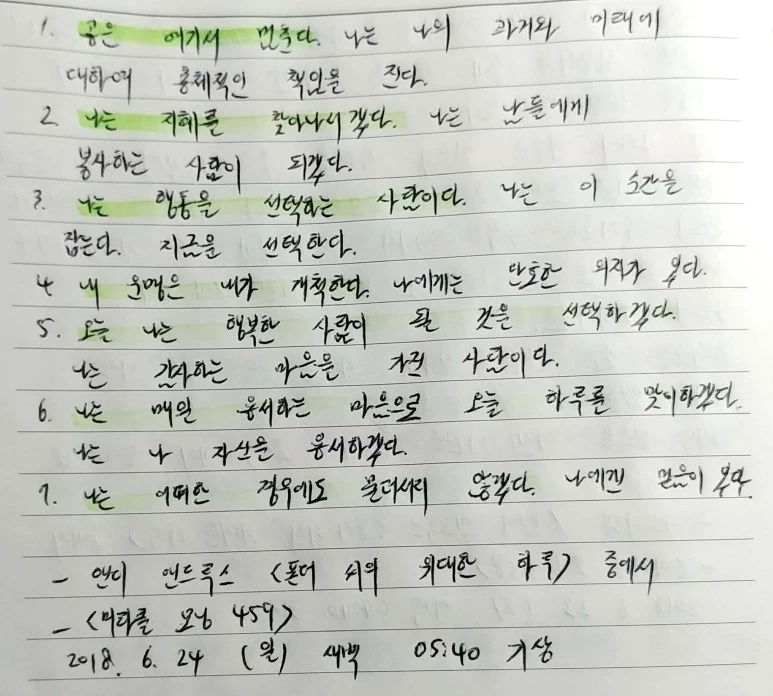 1. 공은 여기서 멈춘다. 나는 나의 과거와 미래에
대하여 총체적인 책임을 진다.
2. 나는 지혜를 찾아나서겠다. 나는 남들에게
봉사하는 사람이 되겠다.
3. 나는 행동을 선택하는 사람이다. 나는 이 순간을
잡는다. 지금을 선택한다.
4 내 운명은 내가 개척한다. 나에게는 단호한 의지가 있다.
5. 오늘 나는 행복한 사람이 될 것을 선택하겠다.
나는 감사하는 마음을 가진 사람이다.
6. 나는 매일 용서하는 마음으로 오늘 하루를 맞이하겠다.
나는 나 자신을 용서하겠다.
7. 나는 어떠한 경우에도 물러서지 않겠다. 나에겐 믿음이 있다.
- 앤디 앤드루스 <폰더 씨의 위대한 하루> 중에서
- <미라클 모닝 459>
2018. 6. 24 (월) 새벽 05:40 기상